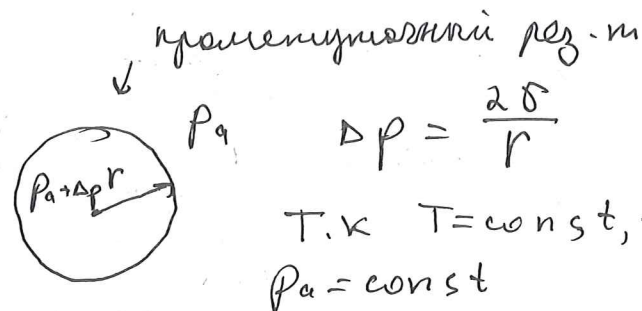 промежуточный рез-т
Pa
Pa+Δp r
Δp = 2σ/r
Т.к T=const,
Pa=const